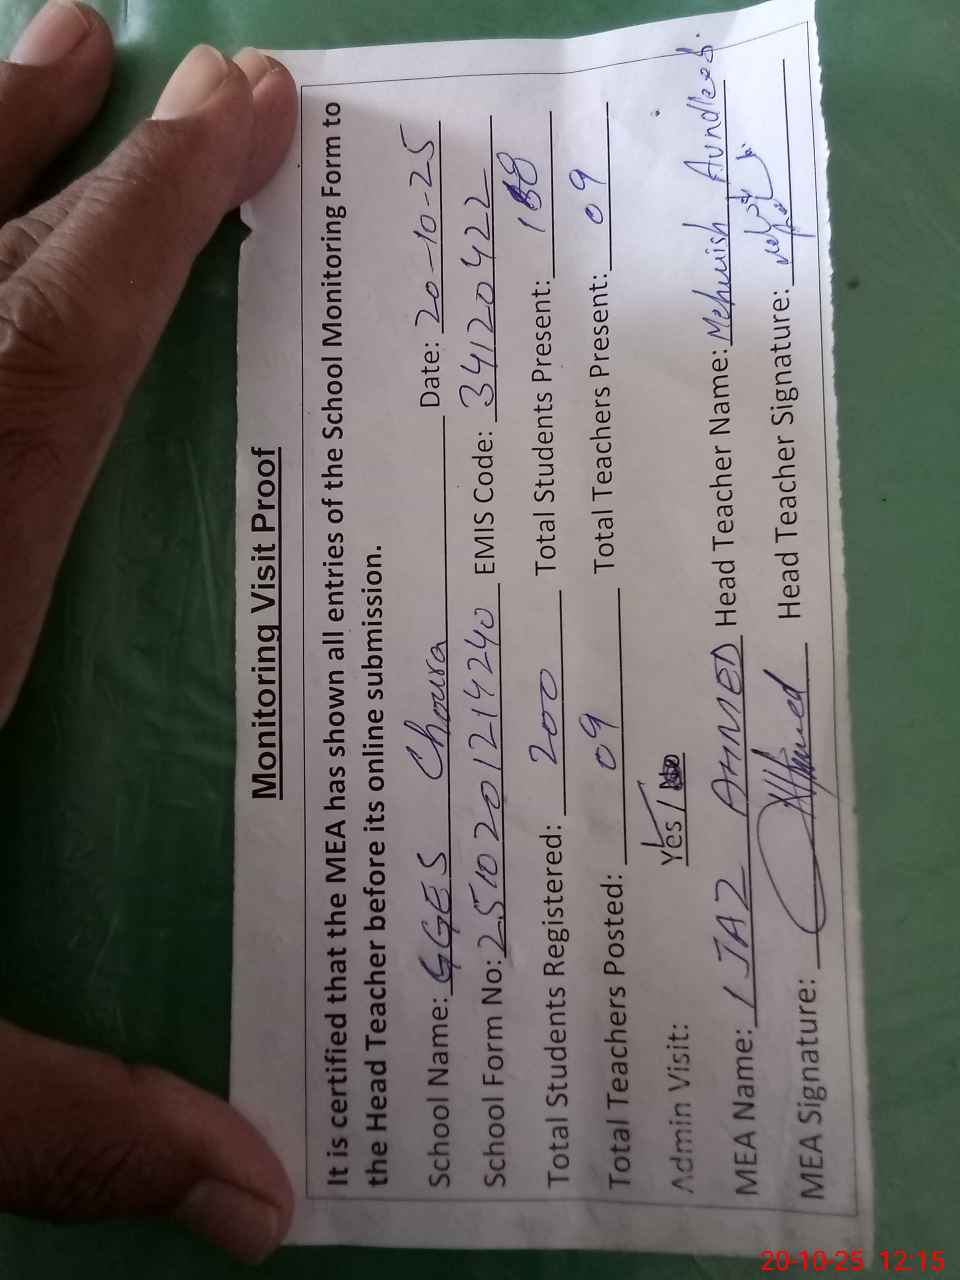 Monitoring Visit Proof
It is certified that the MEA has shown all entries of the School Monitoring Form to
the Head Teacher before its online submission.
School Name: GGES Choura Date: 20-10-25
School Form No: 2510201214240 EMIS Code: 34120422
Total Students Registered: 200 Total Students Present:
Total Teachers Posted: 09 Total Teachers Present: 09
Admin Visit: Yes /
MEA Name: IJAZ AHMED Head Teacher Name: Mehwish
MEA Signature: Head Teacher Signature:
20-10-25 12:15